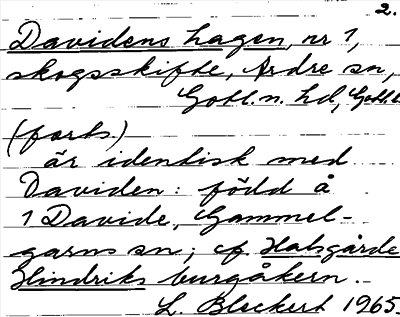 2.
Davidens hagen, nr 1,
skogsskifte, Ardre sn,
Gotl. n. hd, Gotl. l
(forts)
är identisk med
Daviden: född å
1 Davide, Gammel-
garns sn; cf. Halsgårde
Hindriks burgåkern.
L. Bleckert 1965.